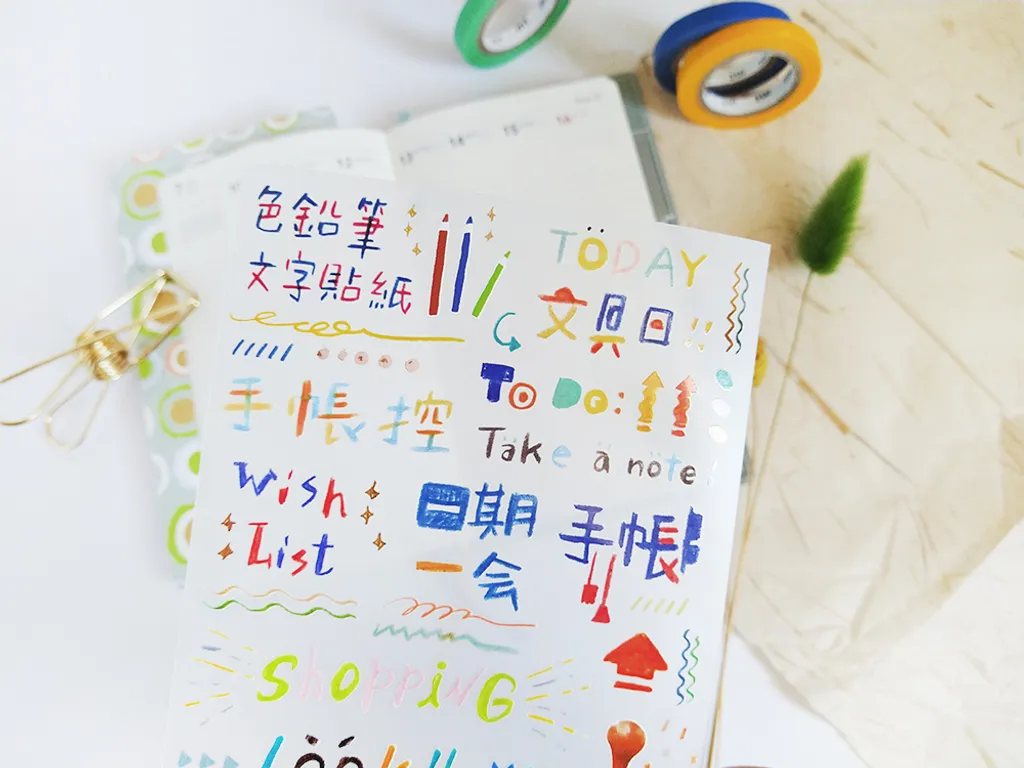 色鉛筆
文字貼紙
TÖDAY
文具日!!
手帳控
To Do:
Täke ä nöte!
Wish
List
日期
一会
手帳
ShoppiNG
Löók!!
14
15